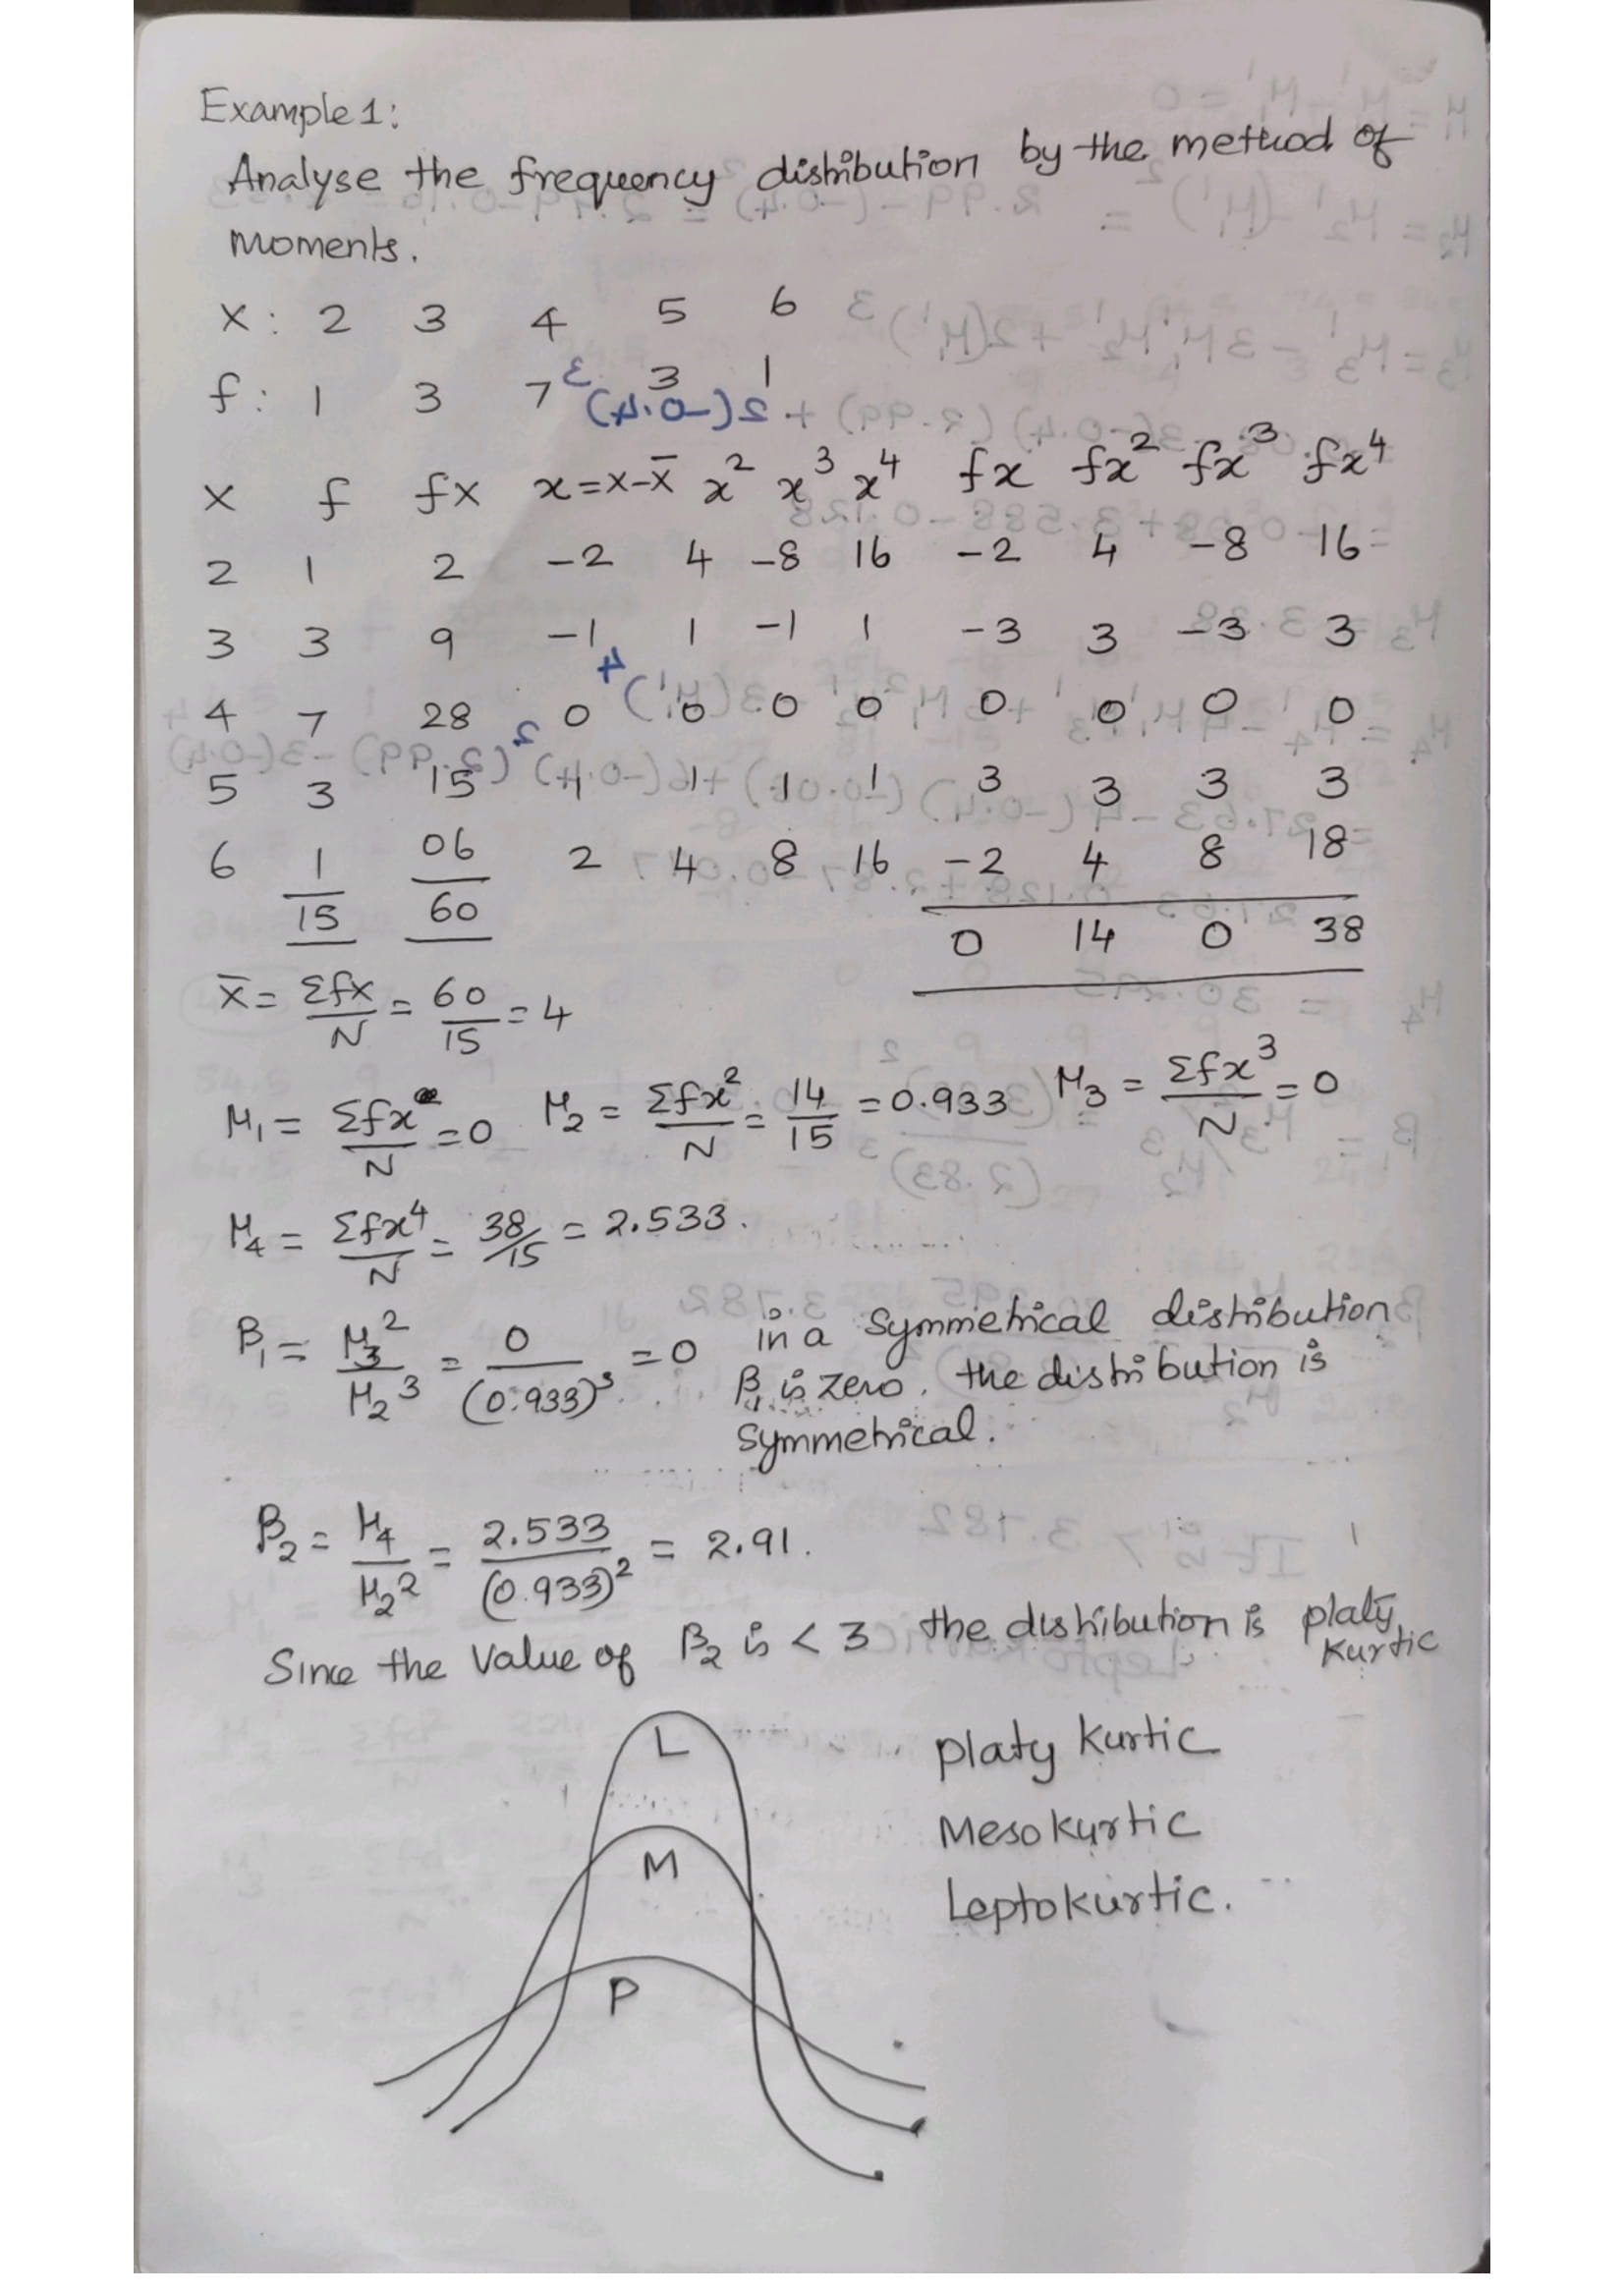 Example 1:
Analyse the frequency distribution by the method of
moments.
X : 2 3 4 5 6
f : 1 3 7 3 1
X f fX x=X-X̄ x² x³ x⁴ fx fx² fx³ fx⁴
2 1 2 -2 4 -8 16 -2 4 -8 16
3 3 9 -1 1 -1 1 -3 3 -3 3
4 7 28 0 0 0 0 0 0 0 0
5 3 15 1 1 1 1 3 3 3 3
6 1 06 2 4 8 16 -2 4 8 18
15 60 0 14 0 38
X̄ = ΣfX/N = 60/15 = 4
μ₁ = Σfx/N = 0 μ₂ = Σfx²/N = 14/15 = 0.933 μ₃ = Σfx³/N = 0
μ₄ = Σfx⁴/N = 38/15 = 2.533.
β₁ = μ₃²/μ₂³ = 0/(0.933)³ = 0 in a symmetrical distribution
β₁ is zero. the distribution is
symmetrical.
β₂ = μ₄/μ₂² = 2.533/(0.933)² = 2.91.
Since the value of β₂ is < 3 the distribution is platy
kurtic
L
M
P
platy kurtic
Mesokurtic
Leptokurtic.